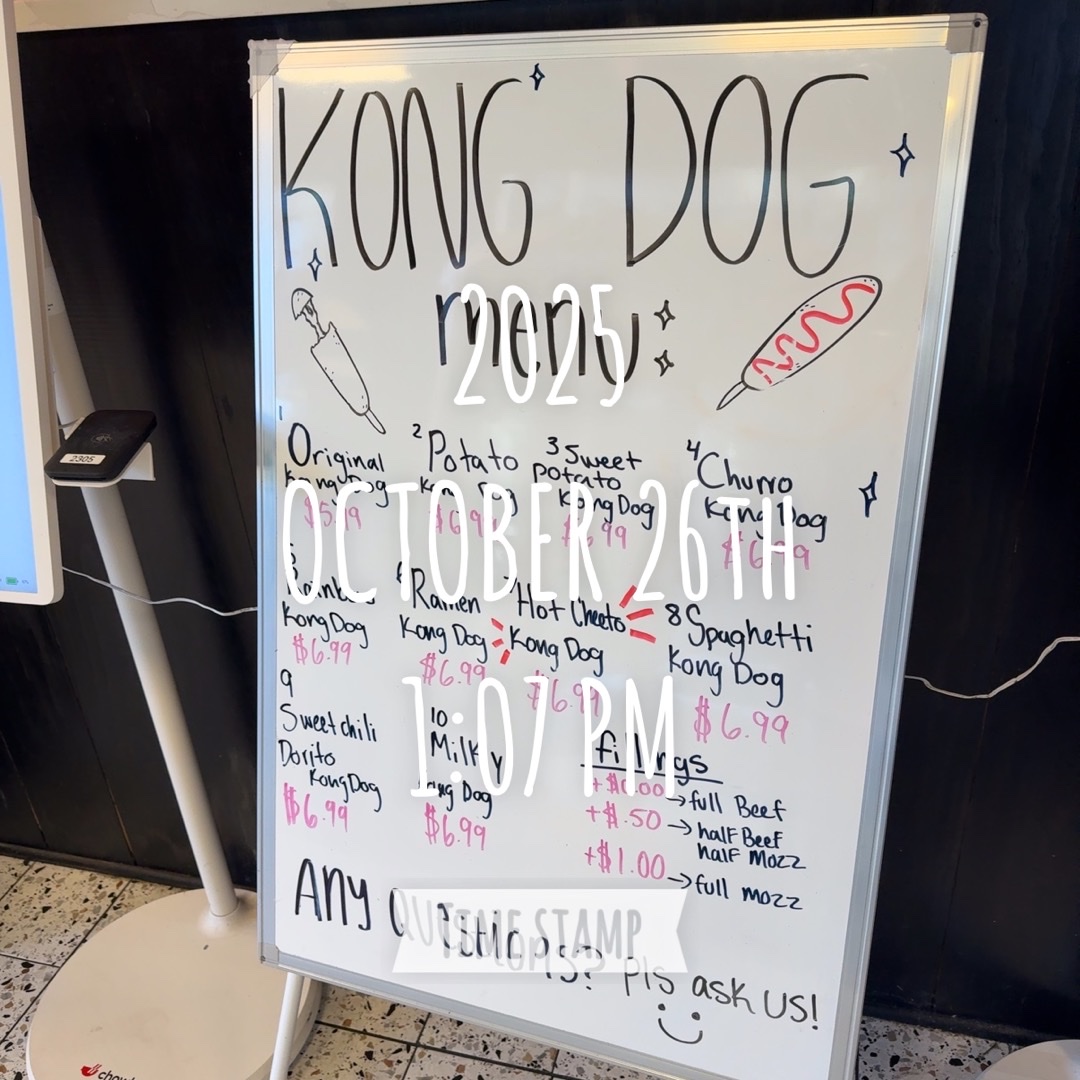 KONG DOG
menu:
2025
1
Original
Kong Dog
$5.99
2 Potato
Kong Dog
$6.99
3 Sweet
potato
Kong Dog
$6.99
4 Churro
Kong Dog
$6.99
OCTOBER 26TH
5
Rainbow
Kong Dog
$6.99
6 Ramen
Kong Dog
$6.99
7 Hot Cheeto
Kong Dog
$6.99
8 Spaghetti
Kong Dog
$6.99
1:07 PM
9
Sweet chili
Dorito
Kong Dog
$6.99
10
Milky
Kong Dog
$6.99
fillings
+$0.00 → full Beef
+$.50 → half Beef
half Mozz
+$1.00 → full mozz
TIME STAMP
Any Questions? pls ask us!
2305